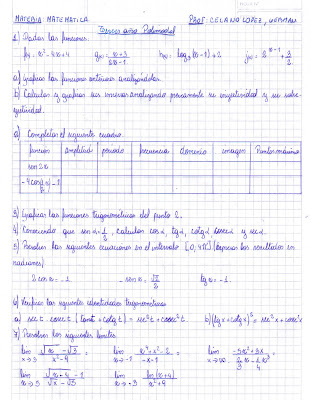 MATERIA: MATEMATICA PROF: CELANO LOPEZ, GERMAN
Tercer año Polimodal
1) Dadas las funciones:
f(x)= x² - 4x + 4 g(x)= x+3 / 2x-1 h(x)= log₂(x-1)+2 j(x)= 2^(x-1) + 3/2
a) Graficar las funciones anteriores analizándolas.
b) Calcular y graficar sus inversas analizando previamente su inyectividad y su sobre-
yectividad.
a) Completar el siguiente cuadro.
función amplitud periodo frecuencia dominio imagen Puntos máximos
sen 2x
3) Graficar las funciones trigonometricas del punto 2.
4) Conociendo que sen α = 1/2, calcular cos α, tg α, cotg α, cosec α y sec α.
5) Resolver las siguientes ecuaciones en el intervalo [0, 4π] (expresar los resultados en
radianes)
2 cos x = -1 - sen x = √2/2 tg x = -1
6) Verificar las siguientes identidades trigonometricas
a) sec t . cosec t . (tan t + cotg t) = sec² t + cosec² t b) (tg x + cotg x)² = sec² x + cosec² x
7) Resolver los siguientes limites
lim x→3 √x - √3 / x² - 9 = lim x→-1 = lim x→∞ -5x² + 3x
lim x→5 √x-4 - 1 / √x - √5 lim x→-3 ln(x+4)